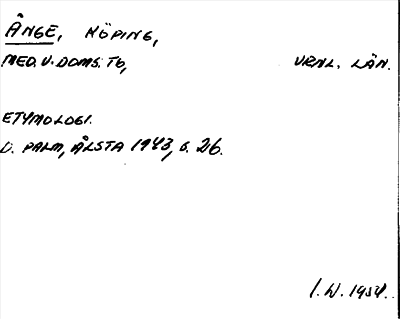 ÅNGE, KÖPING,
MED. V. DOMS. TB,
VRNL. LÄN.
ETYMOLOGI.
D. PALM, ÅLSTA 1943, S. 26.
I. W. 1954.